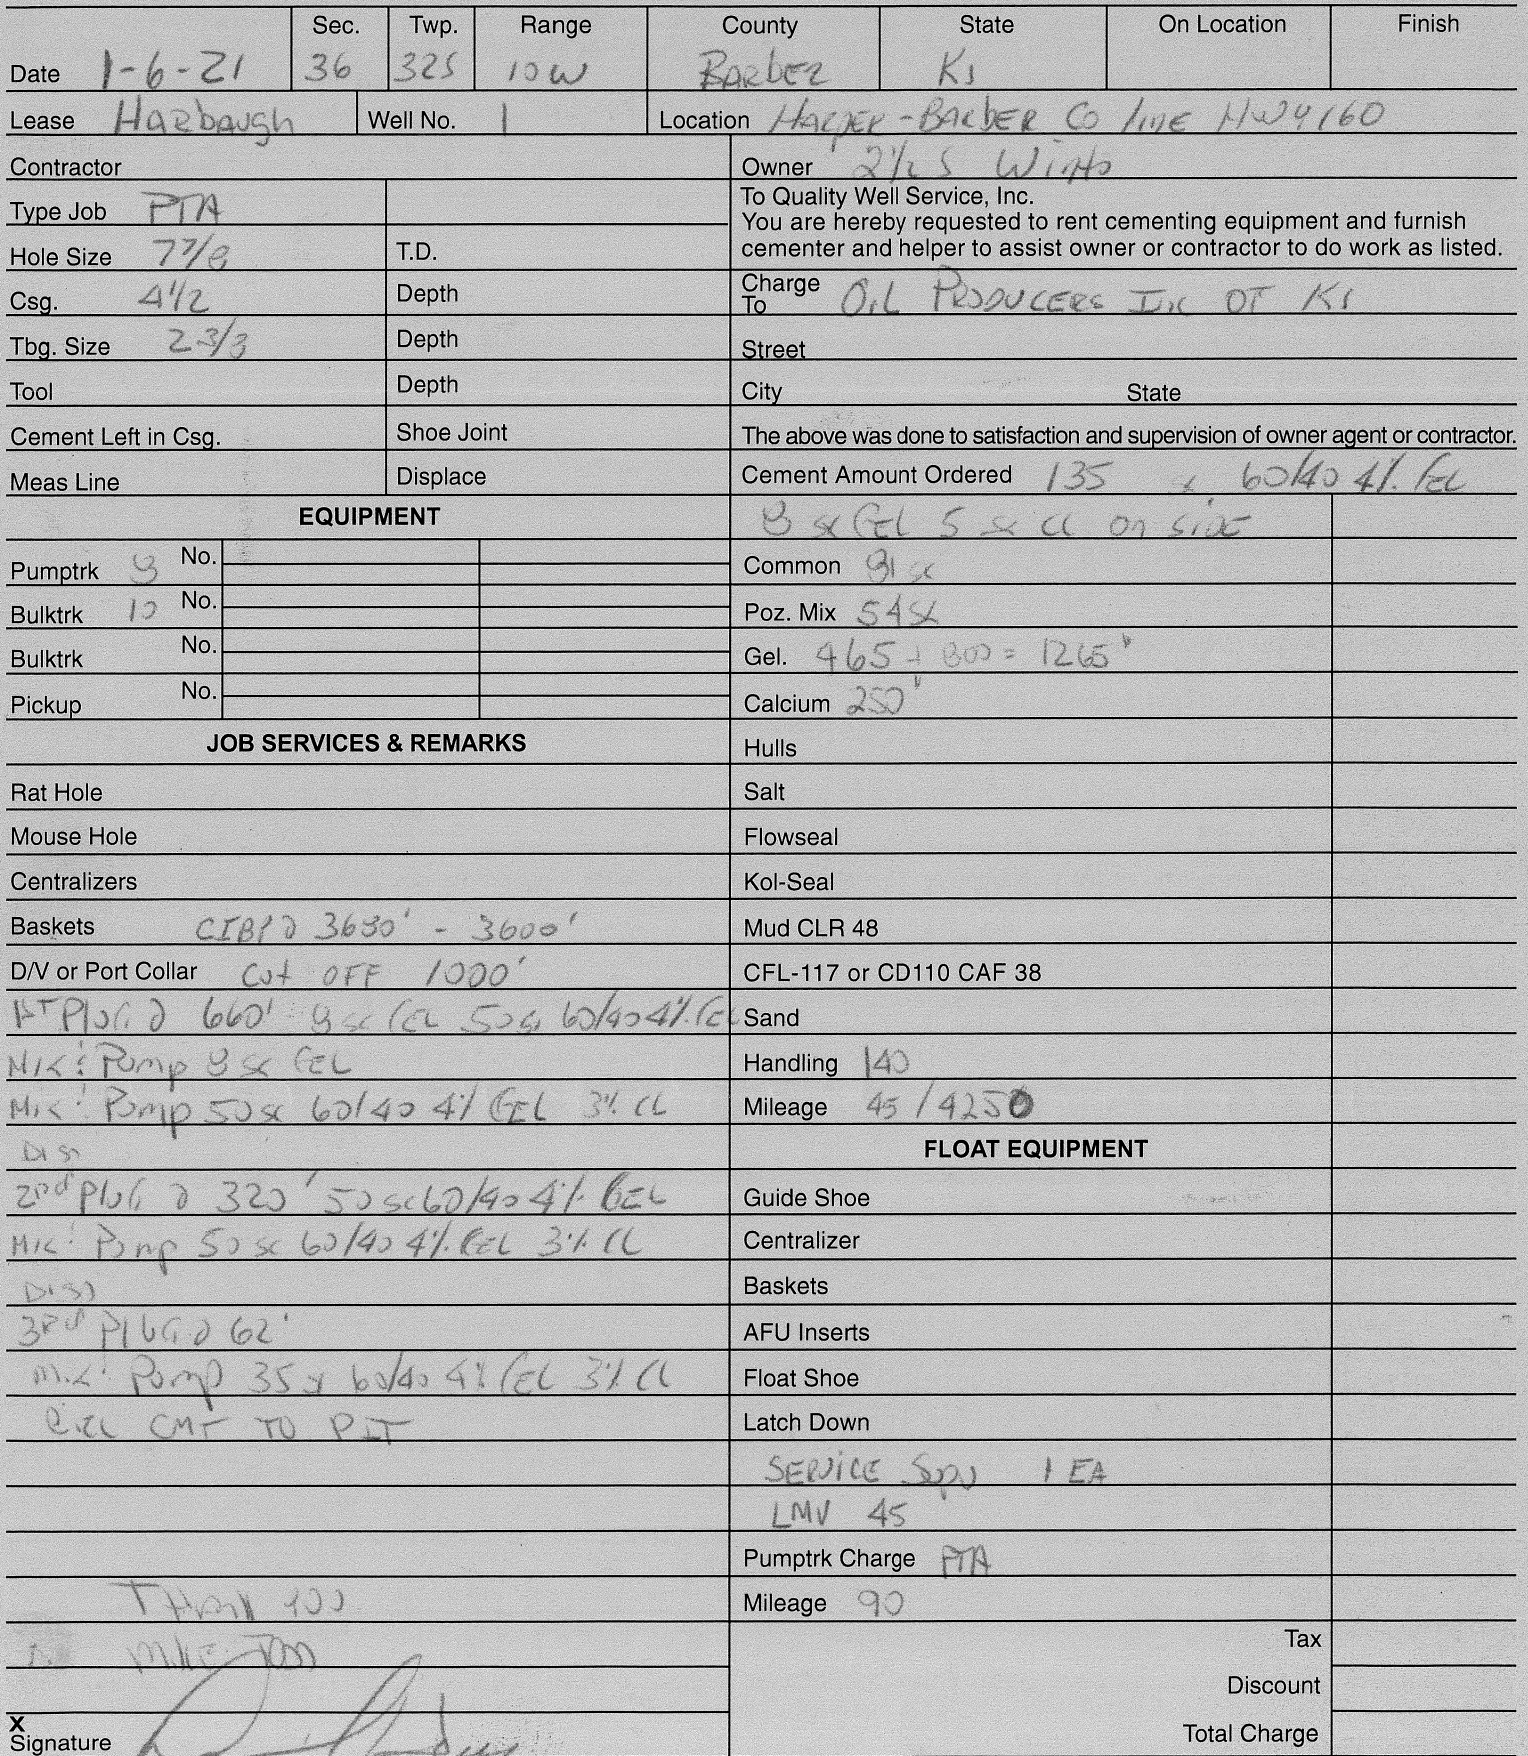 Sec. Twp. Range County State On Location Finish
Date 1-6-21 36 32S 10W Barber Ks
Lease Harbaugh Well No. 1 Location Harper-Barber Co line HWY 160
Contractor Owner 2 1/2 S W into
Type Job PTA To Quality Well Service, Inc.
You are hereby requested to rent cementing equipment and furnish
Hole Size 7 7/8 T.D. cementer and helper to assist owner or contractor to do work as listed.
Csg. 4 1/2 Depth Charge To Oil Producers Inc of Ks
Tbg. Size 2 3/8 Depth Street
Tool Depth City State
Cement Left in Csg. Shoe Joint The above was done to satisfaction and supervision of owner agent or contractor.
Meas Line Displace Cement Amount Ordered 135 sx 60/40 4% Gel
EQUIPMENT 8 sx Gel 5 sx CC on side
Pumptrk 8 No. Common 81 sx
Bulktrk 10 No. Poz. Mix 54 sx
Bulktrk No. Gel. 465 + 800 = 1265 #
Pickup No. Calcium 250 #
JOB SERVICES & REMARKS Hulls
Rat Hole Salt
Mouse Hole Flowseal
Centralizers Kol-Seal
Baskets CIBP @ 3680' - 3600' Mud CLR 48
D/V or Port Collar Cut OFF 1000' CFL-117 or CD110 CAF 38
1st Plug @ 660' 8 sx Gel 50 sx 60/40 4% Gel Sand
Mix & Pump 8 sx Gel Handling 140
Mix & Pump 50 sx 60/40 4% Gel 3% CC Mileage 45 / 4250
Disp FLOAT EQUIPMENT
2nd Plug @ 320' 50 sx 60/40 4% Gel Guide Shoe
Mix & Pump 50 sx 60/40 4% Gel 3% CC Centralizer
Disp Baskets
3rd Plug @ 62' AFU Inserts
Mix & Pump 35 sx 60/40 4% Gel 3% CC Float Shoe
Circ CMT TO PIT Latch Down
Service Supv 1 EA
LMV 45
Pumptrk Charge PTA
Thank you Mileage 90
Tax
Discount
X
Signature Total Charge